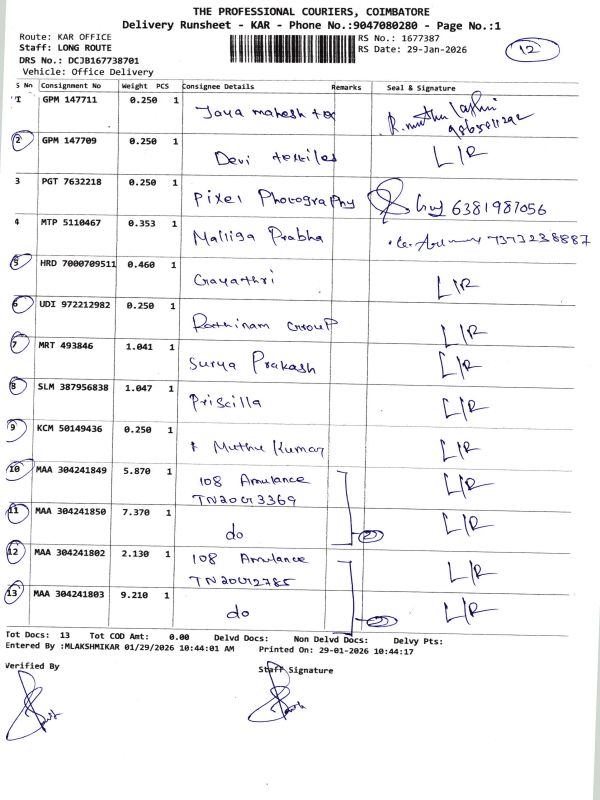 THE PROFESSIONAL COURIERS, COIMBATORE
Delivery Runsheet - KAR - Phone No.:9047080280 - Page No.:1
Route: KAR OFFICE RS No.: 1677387
Staff: LONG ROUTE RS Date: 29-Jan-2026 12
DRS No.: DCJB167738701
Vehicle: Office Delivery
S No Consignment No Weight PCS Consignee Details Remarks Seal & Signature
1 GPM 147711 0.250 1 Jaya mahesh tex
2 GPM 147709 0.250 1 Devi textiles L/R
3 PGT 7632218 0.250 1 Pixel Photography 6381987056
4 MTP 5110467 0.353 1 Malliga Prabha 7373238887
5 HRD 7000709511 0.460 1 Gayathri L/R
6 UDI 972212982 0.250 1 Rathinam Group L/R
7 MRT 493846 1.041 1 Surya Prakash L/R
8 SLM 387956838 1.047 1 Priscilla L/R
9 KCM 50149436 0.250 1 Muthu Kumar L/R
10 MAA 304241849 5.870 1 108 Amulance L/R
11 MAA 304241850 7.370 1 do 2 L/R
12 MAA 304241802 2.130 1 108 Amulance L/R
13 MAA 304241803 9.210 1 do 2 L/R
Tot Docs: 13 Tot COD Amt: 0.00 Delvd Docs: Non Delvd Docs: Delvy Pts:
Entered By :MLAKSHMIKAR 01/29/2026 10:44:01 AM Printed On: 29-01-2026 10:44:17
Verified By Staff Signature